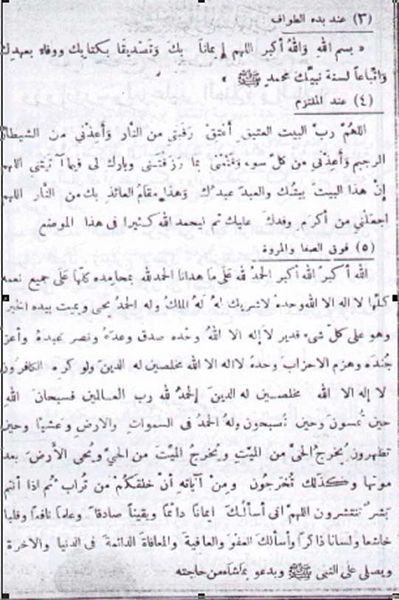 (٣) عند بدء الطواف
بسم الله والله أكبر اللهم إيماناً بك وتصديقا بكتابك ووفاء بعهدك
واتباعاً لسنة نبيك محمد ﷺ
(٤) عند الملتزم
اللهم رب البيت العتيق أعتق رقبتي من النار وأعذني من الشيطان
الرجيم وأعذني من كل سوء وقنعني بما رزقتني وبارك لي فيما آتيتني اللهم
إن هذا البيت بيتك والعبد عبدك وهذا مقام العائذ بك من النار اللهم
اجعلني من أكرم وفدك عليك ثم ليحمد الله كثيرا في هذا الموضع
(٥) فوق الصفا والمروة
الله أكبر الله أكبر الحمد لله على ما هدانا الحمد لله بمحامده كلها على جميع نعمه
كلها لا اله الا الله وحدة لاشريك له له الملك وله الحمد يحي ويميت بيده الخير
وهو على كل شيء قدير لا إله الا الله وحده صدق وعده ونصر عبدة وأعز
جنده وهزم الاحزاب وحدة لا اله الا الله مخلصين له الدين ولو كره الكافرون
لا إله الا الله مخلصين له الدين الحمد لله رب العالمين فسبحان الله
حين تمسون وحين تصبحون وله الحمد في السموات والارض وعشيا وحين
تظهرون يخرج الحي من الميت ويخرج الميت من الحي ويحي الأرض بعد
موتها وكذلك تخرجون ومن آياته أن خلقكم من تراب ثم اذا أنتم
بشر تنتشرون اللهم اني أسألك ايمانا دائما ويقينا صادقا وعلما نافعا وقلبا
خاشعا ولسانا ذاكرا وأسألك العفو والعافية والمعافاة الدائمة في الدنيا والآخرة
ويصلي على النبي ﷺ ويدعو بماشاء من حاجته